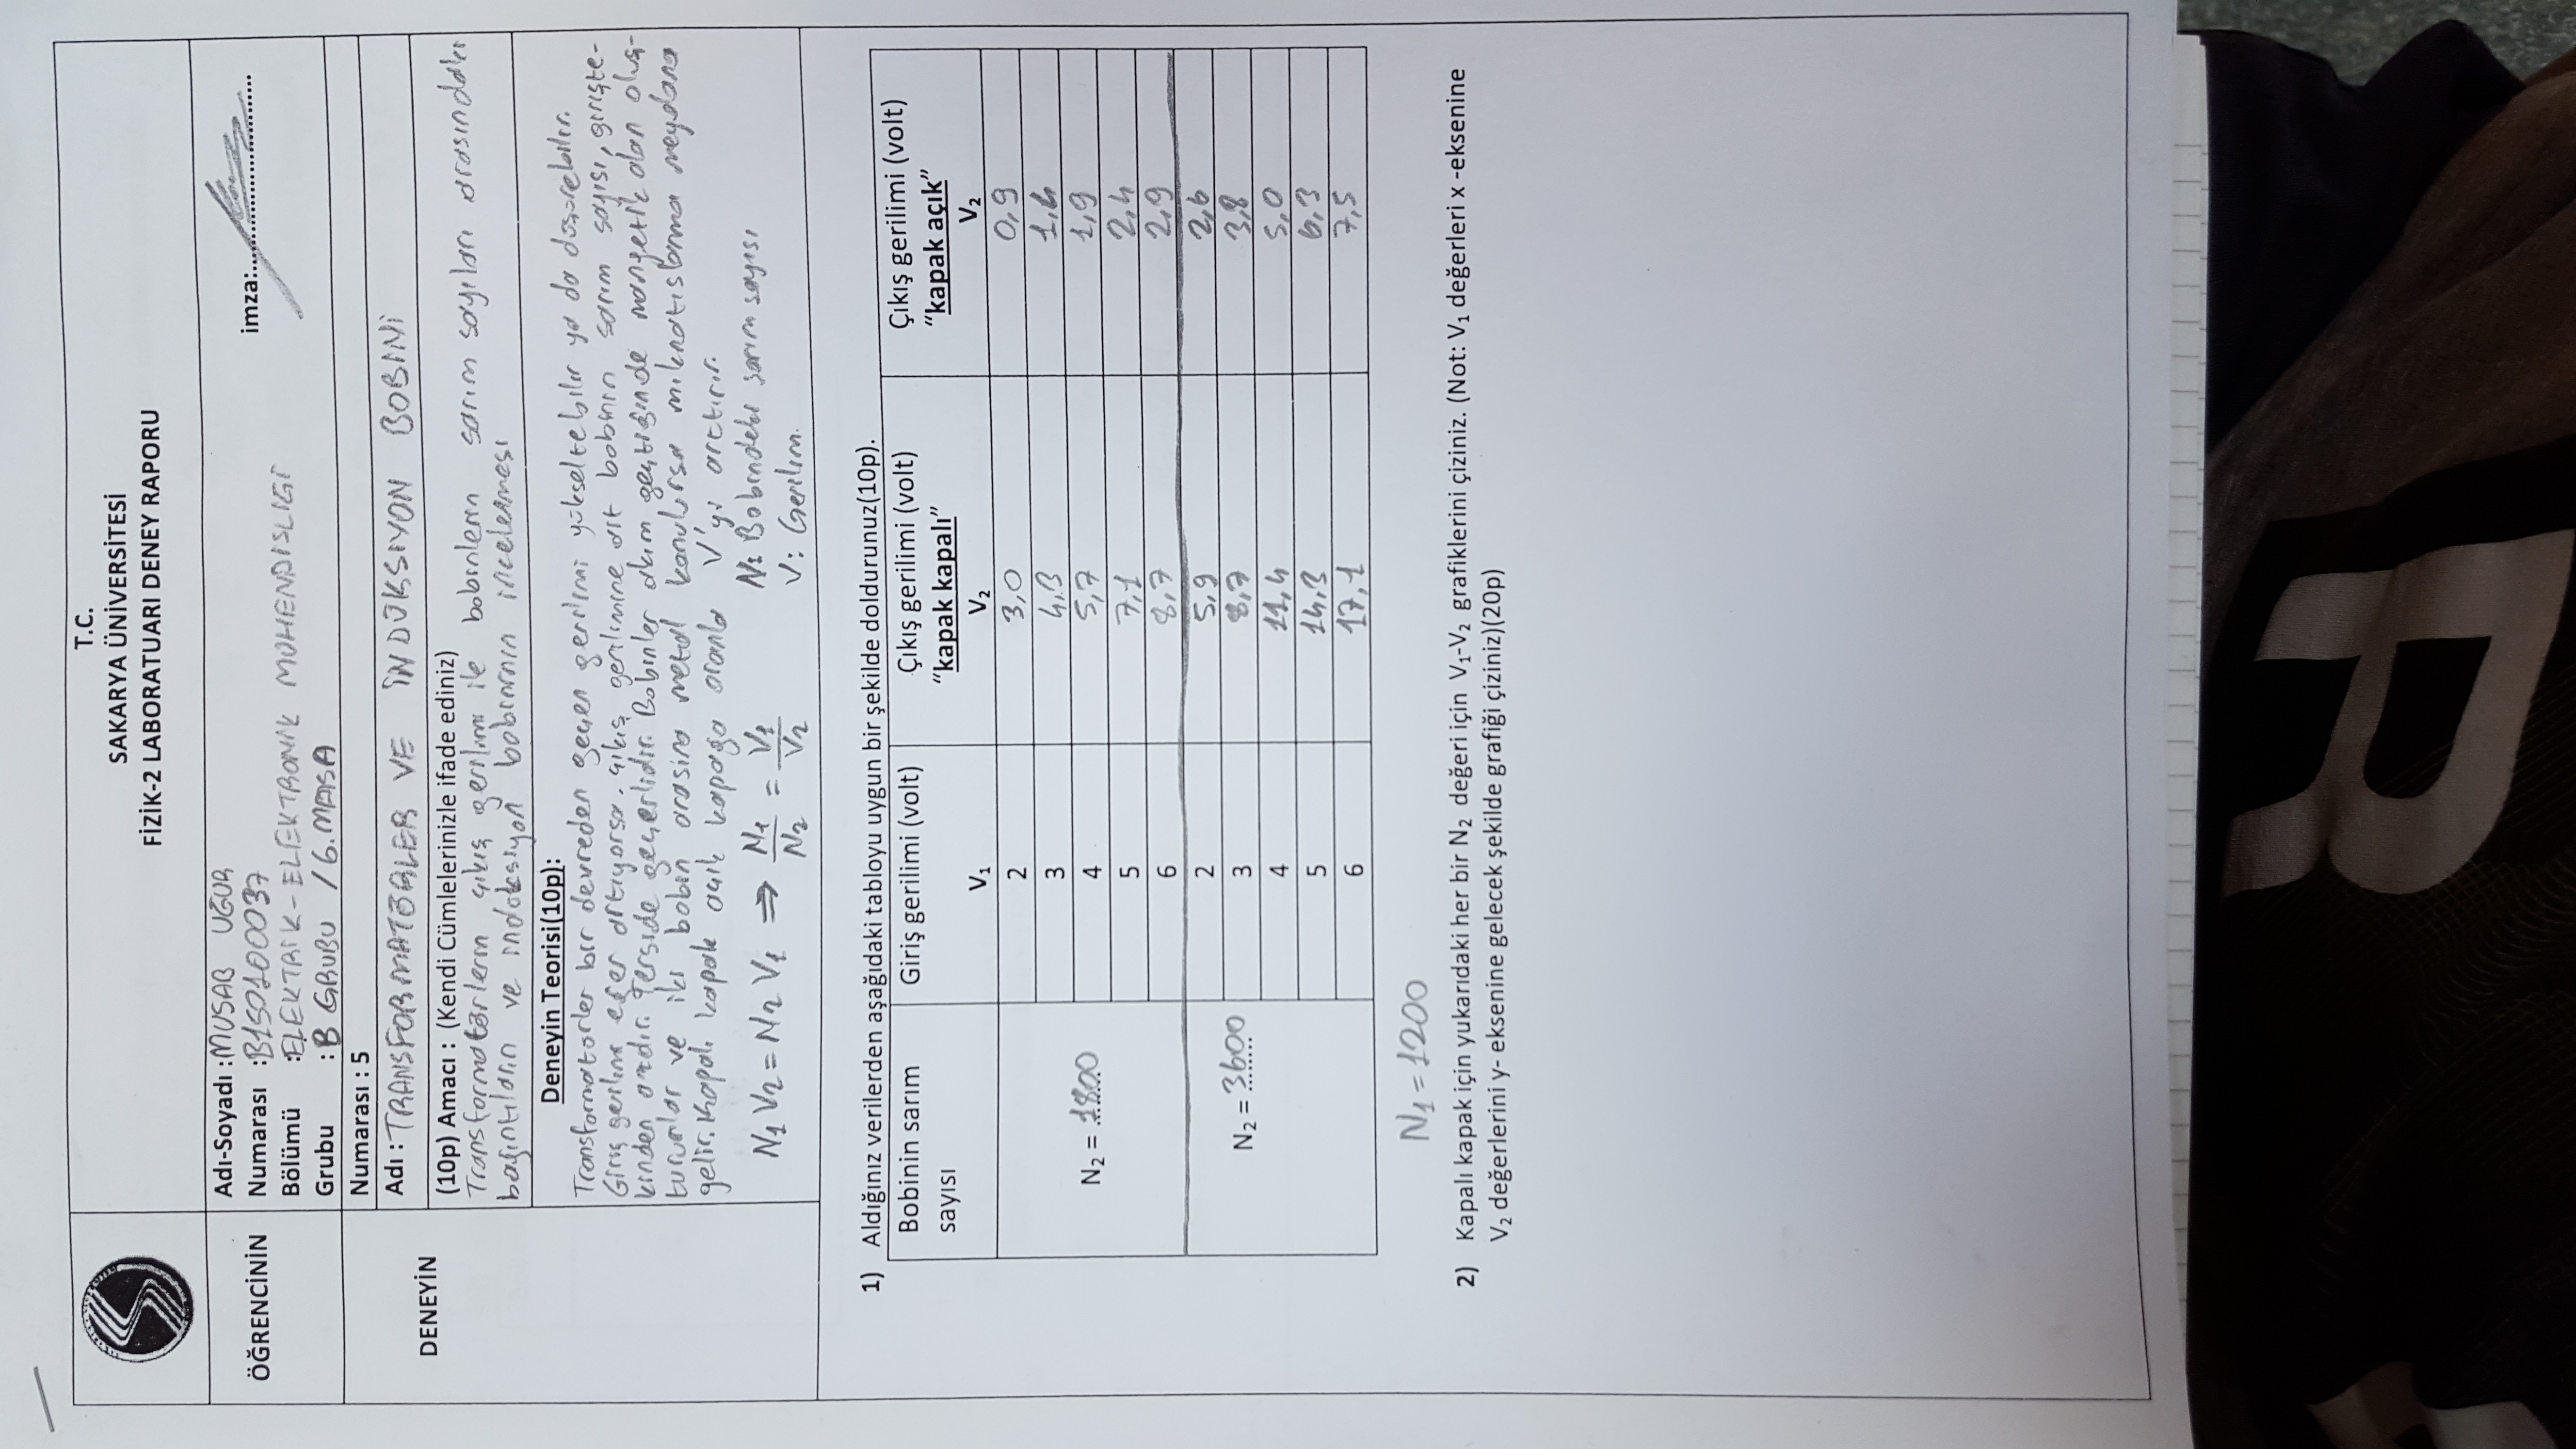 T.C.
SAKARYA ÜNİVERSİTESİ
FİZİK-2 LABORATUARI DENEY RAPORU
ÖĞRENCİNİN
Adı-Soyadı :MUSAB UĞUR
imza:
Numarası :B150100037
Bölümü :ELEKTRİK-ELEKTRONİK MÜHENDİSLİĞİ
Grubu : B GRUBU / 6.MASA
DENEYİN
Numarası : 5
Adı : TRANSFORMATÖRLER VE İNDÜKSİYON BOBİNİ
(10p) Amacı : (Kendi Cümlelerinizle ifade ediniz)
Transformatörlerin çıkış gerilimi ile bobinlerin sarım sayıları arasındaki
bağıntıların ve indüksiyon bobininin incelenmesi
Deneyin Teorisi(10p):
Transformatörler bir devreden geçen gerilimi yükseltebilir ya da düşürebilir.
Giriş gerilimi eğer artıyorsa, çıkış gerilimine ait bobinin sarım sayısı, girişte-
kinden azdır. Terside geçerlidir. Bobinler akım geçtiğinde mangetik alan oluş-
tururlar ve iki bobin arasına metal konulursa mıknatıslanma meydana
gelir. Kapalı kapak açık kapağa oranla V'yi arttırır.
N₁ V₂ = N₂ V₁ ⇒ N₁/N₂ = V₁/V₂
N: Bobindeki sarım sayısı
V: Gerilim.
1) Aldığınız verilerden aşağıdaki tabloyu uygun bir şekilde doldurunuz(10p).
Bobinin sarım sayısı Giriş gerilimi (volt) V₁ Çıkış gerilimi (volt) "kapak kapalı" V₂ Çıkış gerilimi (volt) "kapak açık" V₂
N₂ = 1800
2 3,0 0,9
3 4,3 1,4
4 5,7 1,9
5 7,1 2,4
6 8,7 2,9
N₂ = 3600
2 5,9 2,6
3 8,7 3,8
4 11,4 5,0
5 14,3 6,3
6 17,1 7,5
N₁ = 1200
2) Kapalı kapak için yukarıdaki her bir N₂ değeri için V₁-V₂ grafiklerini çiziniz. (Not: V₁ değerleri x -eksenine
V₂ değerlerini y- eksenine gelecek şekilde grafiği çiziniz)(20p)